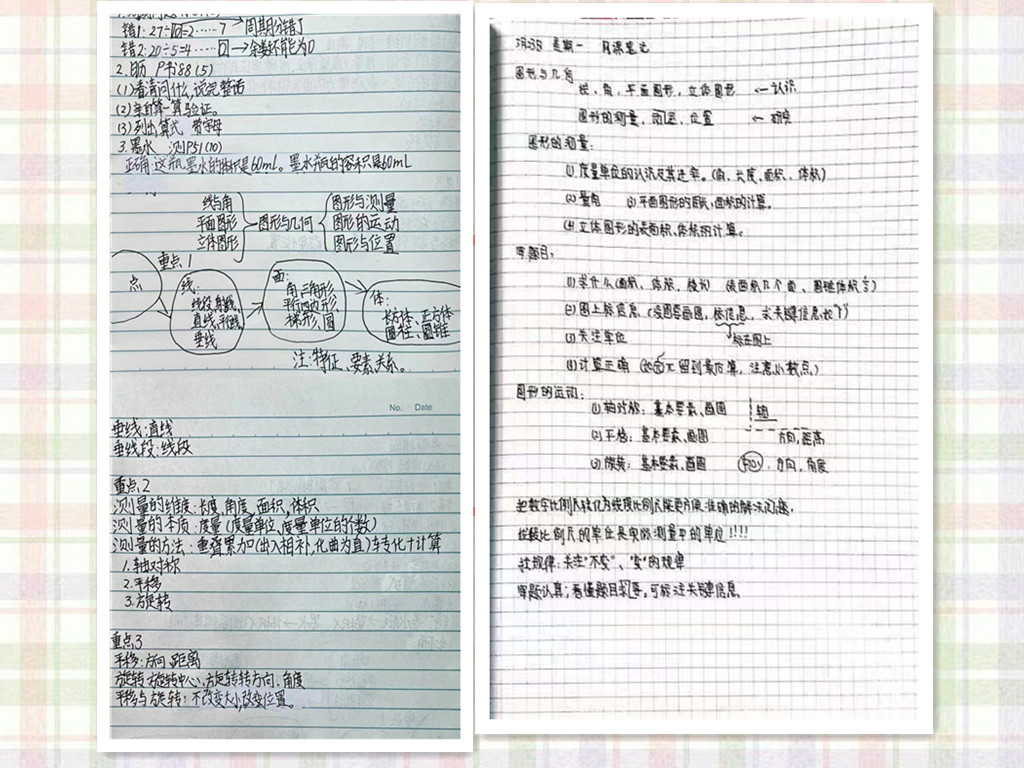 错1:27÷10=2……7→周期分错了
错2:20÷5=4……0→余数不能为0
2. P书88(5)
(1)看清问什么,说完整话
(2)每自算一算验证。
(3)列出算式 带字母
3.墨水 测P51(10)
正确:这瓶墨水的体积是60mL。墨水瓶的容积是60mL
线与角
平面图形
立体图形
图形与几何
图形与测量
图形的运动
图形与位置
重点1
点
线:
线段,射线,
直线,平行线,
垂线
面:
角,三角形
平行四边形,
梯形,圆
体:
长方体、正方体
圆柱、圆锥
注:特征、要素、关系。
No. Date
垂线:直线
垂线段:线段
重点2
测量的维度:长度,角度,面积,体积
测量的本质:度量(度量单位,度量单位的个数)
测量的方法:重叠累加(出入相补,化曲为直)转化十计算
1.轴对称
2.平移
3.旋转
重点3
平移:方向、距离
旋转:旋转中心、旋转方向、角度
平移与旋转:不改变大小,改变位置。
星期一 网课笔记
图形与几何
线、角,平面图形,立体图形 ←认识
图形的测量,位置
图形的测量:
(1)度量单位的认识及其进率。(角、长度、面积、体积)
(2)量角 (3)平面图形的周长,面积的计算。
(4)立体图形的表面积、体积的计算。
审题目:
(1)求什么(面积、体积、棱长)
(2)图上标信息。(没图要画图,标信息,
标在图上
(3)关注单位
(4)计算正确 留到最后算,注意小数点)
图形的运动:
(1)轴对称:基本要素、画图 轴
(2)平移:基本要素、画图 方向,距离
(3)旋转:基本要素、画图 中心,方向,角度
把数字比例尺转化为线段比例尺能更方便准确的解决问题。
线段比例尺的单位是实际测量中的单位!!!!
找规律:关注“不变”、“变”的规律
审题认真:看懂题目,可标注关键信息。